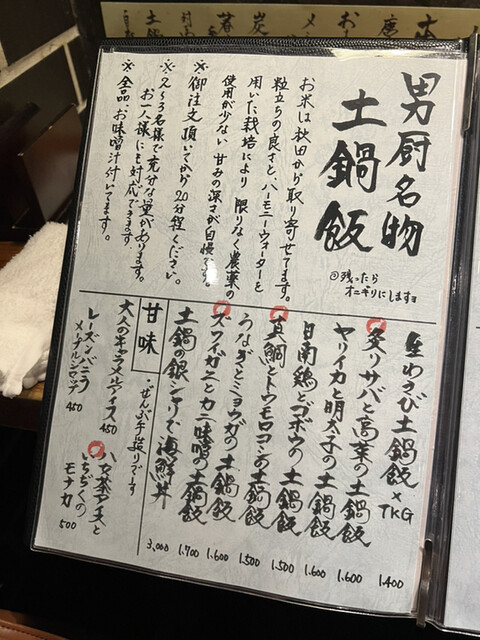 男厨名物
土鍋飯
③残ったら
オニギリにしますヨ
お米は秋田から取り寄せてます。
粒立ちの良さと、ハーモニーウォーターを
用いた栽培により 限りなく農薬の
使用が少ない 甘みの深さが自慢です。
※御注文頂いてから20分程ください。
※2〜3名様で充分な量があります。
お一人様にも対応できます。
※全品 お味噌汁付いてます。
生わさび土鍋飯×TKG 1.400
炙りサバと高菜の土鍋飯 1.600
ヤリイカと明太子の土鍋飯 1.600
日南鶏とゴボウの土鍋飯 1.500
真鯛とトウモロコシの土鍋飯 1.500
うなぎとミョウガの土鍋飯 1.600
ズワイガニとカニ味噌の土鍋飯 1.700
土鍋の銀シャリで海鮮丼 3.000
甘味
・ぜんぶ手造りです
大人のキャラメルアイス 450
レーズンバニラ
メープルシロップ 450
八女茶アイスと
いちぢくの
モナカ 500